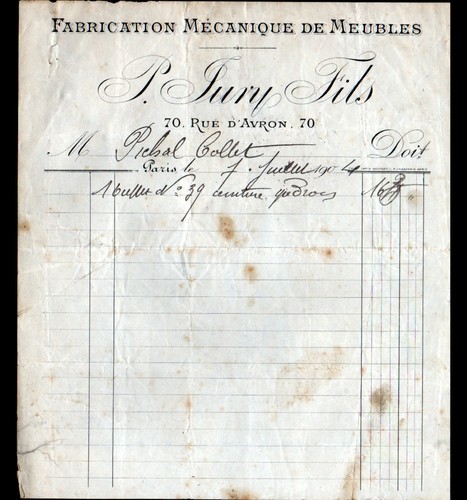 FABRICATION MÉCANIQUE DE MEUBLES
P. Jury Fils
70, RUE D'AVRON, 70
M Pichal Collet Doit
Paris le 7 Juillet 1904
1 Buffet No 39 ceinture